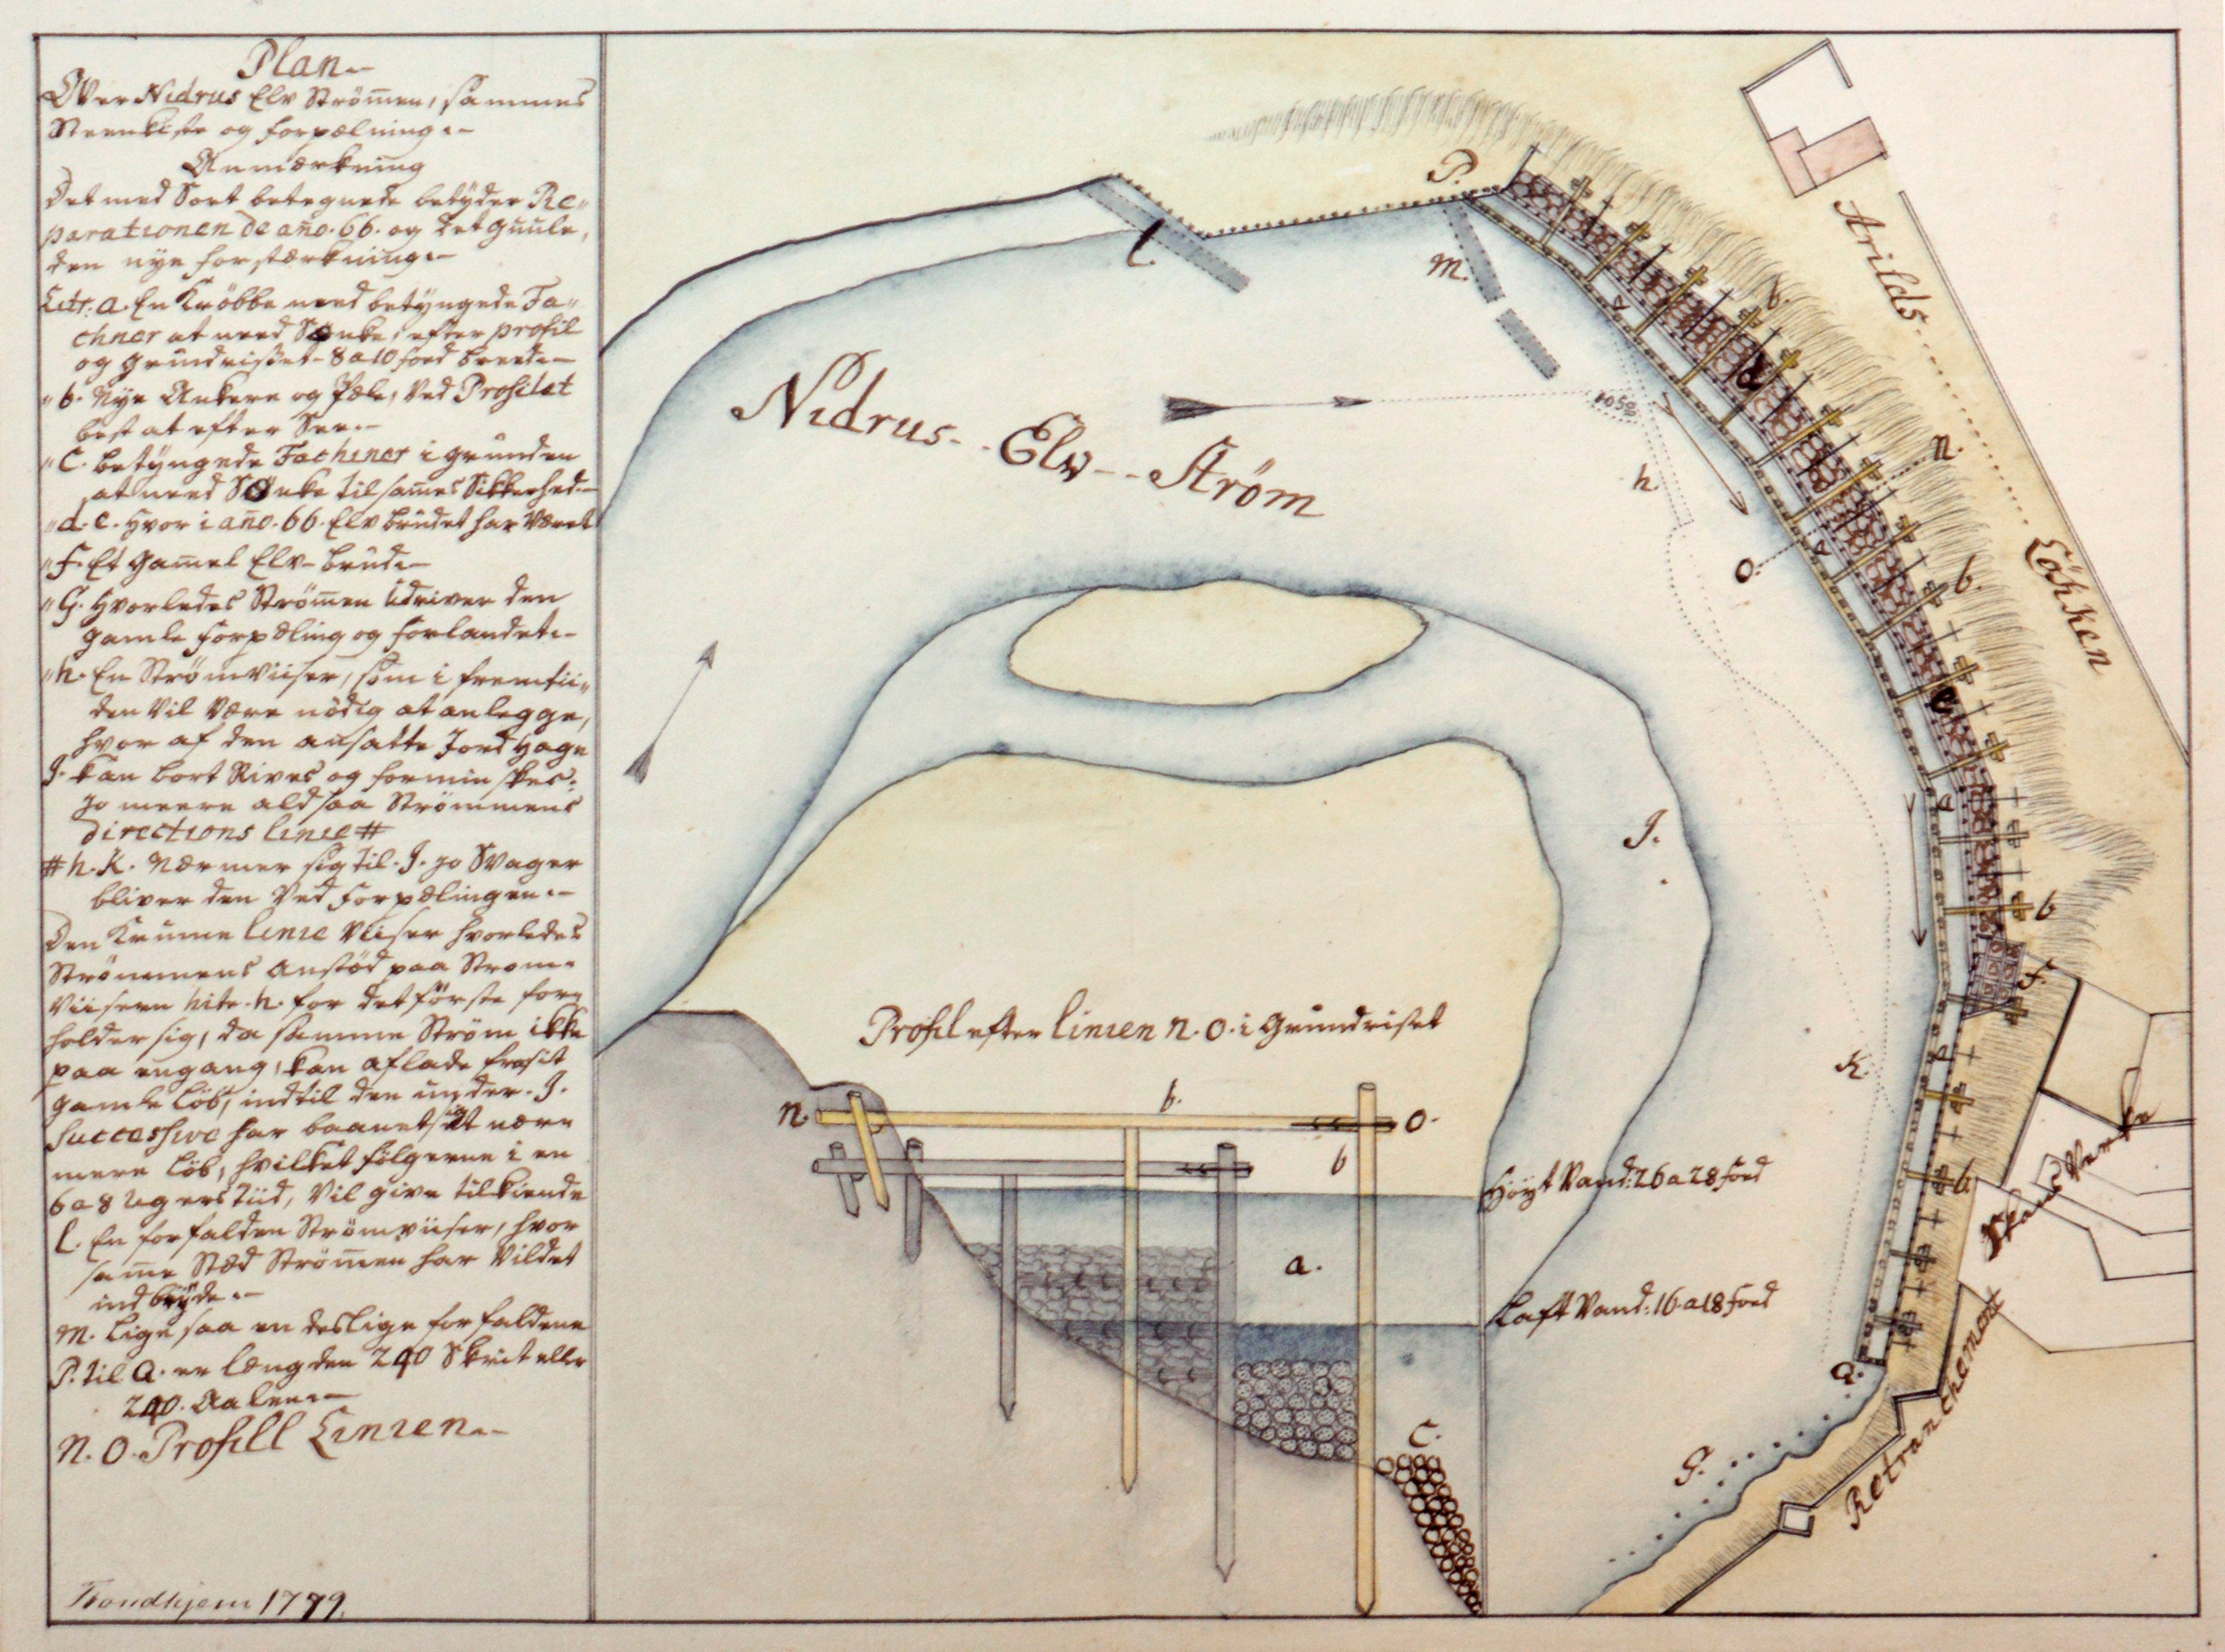 Plan
Over Nidrus Elv Strömen, sammes
Steenkiste og forpælning
Anmærkning
Det med Sort betegnede betyder Re-
parationen de año. 66. og det guule,
den nye forstærkning
Litr: a. En Kröbbe med betyngede Fa-
chner at need Sænke, efter profil
og grundrisset 8 a 10 foed breede
" b. Nye Ankere og Pæle, ved Profilet
best at efter See
" C. betyngede Fachiner i grunden
at need Sænke til sames Sikkerhed
" d. e. Hvor i año. 66. Elv brudet har Været
" F. Et gamel Elv-brud
" G. Hvorledes Strömen udriver den
gamle forpæling og forlandet
" h. En Strömviiser, som i fremtii-
den vil være nödig at anlegge,
hvor af den ansatte Jord Hage
J. kan bort Rives og forminskes:
jo meere aldsaa Strömmens
directions linie #
# h. K. nærmer sig til J. jo Svager
bliver den ved Forpælingen
Den Krume linie viiser hvorledes
Strömmens anstöd paa Strom-
viiseren litr. h. for det förste for-
holder sig, da samme Ström ikke
paa engang kan aflade fra sit
gamle löb, indtil den under J.
successive har baanet sig et nær-
mere löb, hvilket fölgerne i en
6 a 8 ugers tiid, vil give tilkiende
l. En forfalden Strömviiser, hvor
same Stæd Strömen har vildet
indbryde
m. lige saa en deslige forfalden
P. til Q. er længden 240 Skrit eller
240. Aalen
N. O. Profill Linien
Trondhjem 1779.
l.
P.
m.
Arilds Löhken
b.
d
Nidrus Elv Ström
h.
n.
O.
b.
e
J.
b
F.
K.
b.
Skands Verke
Q.
G.
Retranchement
Profil efter linien n. o. i Grundriset
n.
b.
O.
b
Höyt Vand: 26 a 28 foed
a.
Laft Vand: 16 a 18 foed
C.